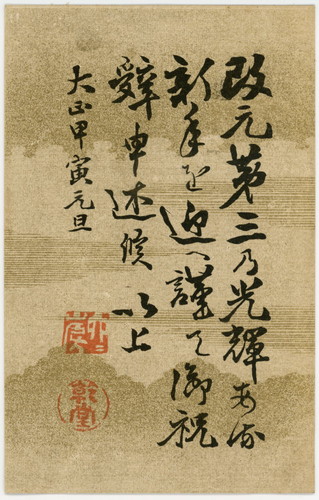 改元第三乃光輝ある
新年を迎へ謹て御祝
辞申述候 以上
大正甲寅元旦
乾堂